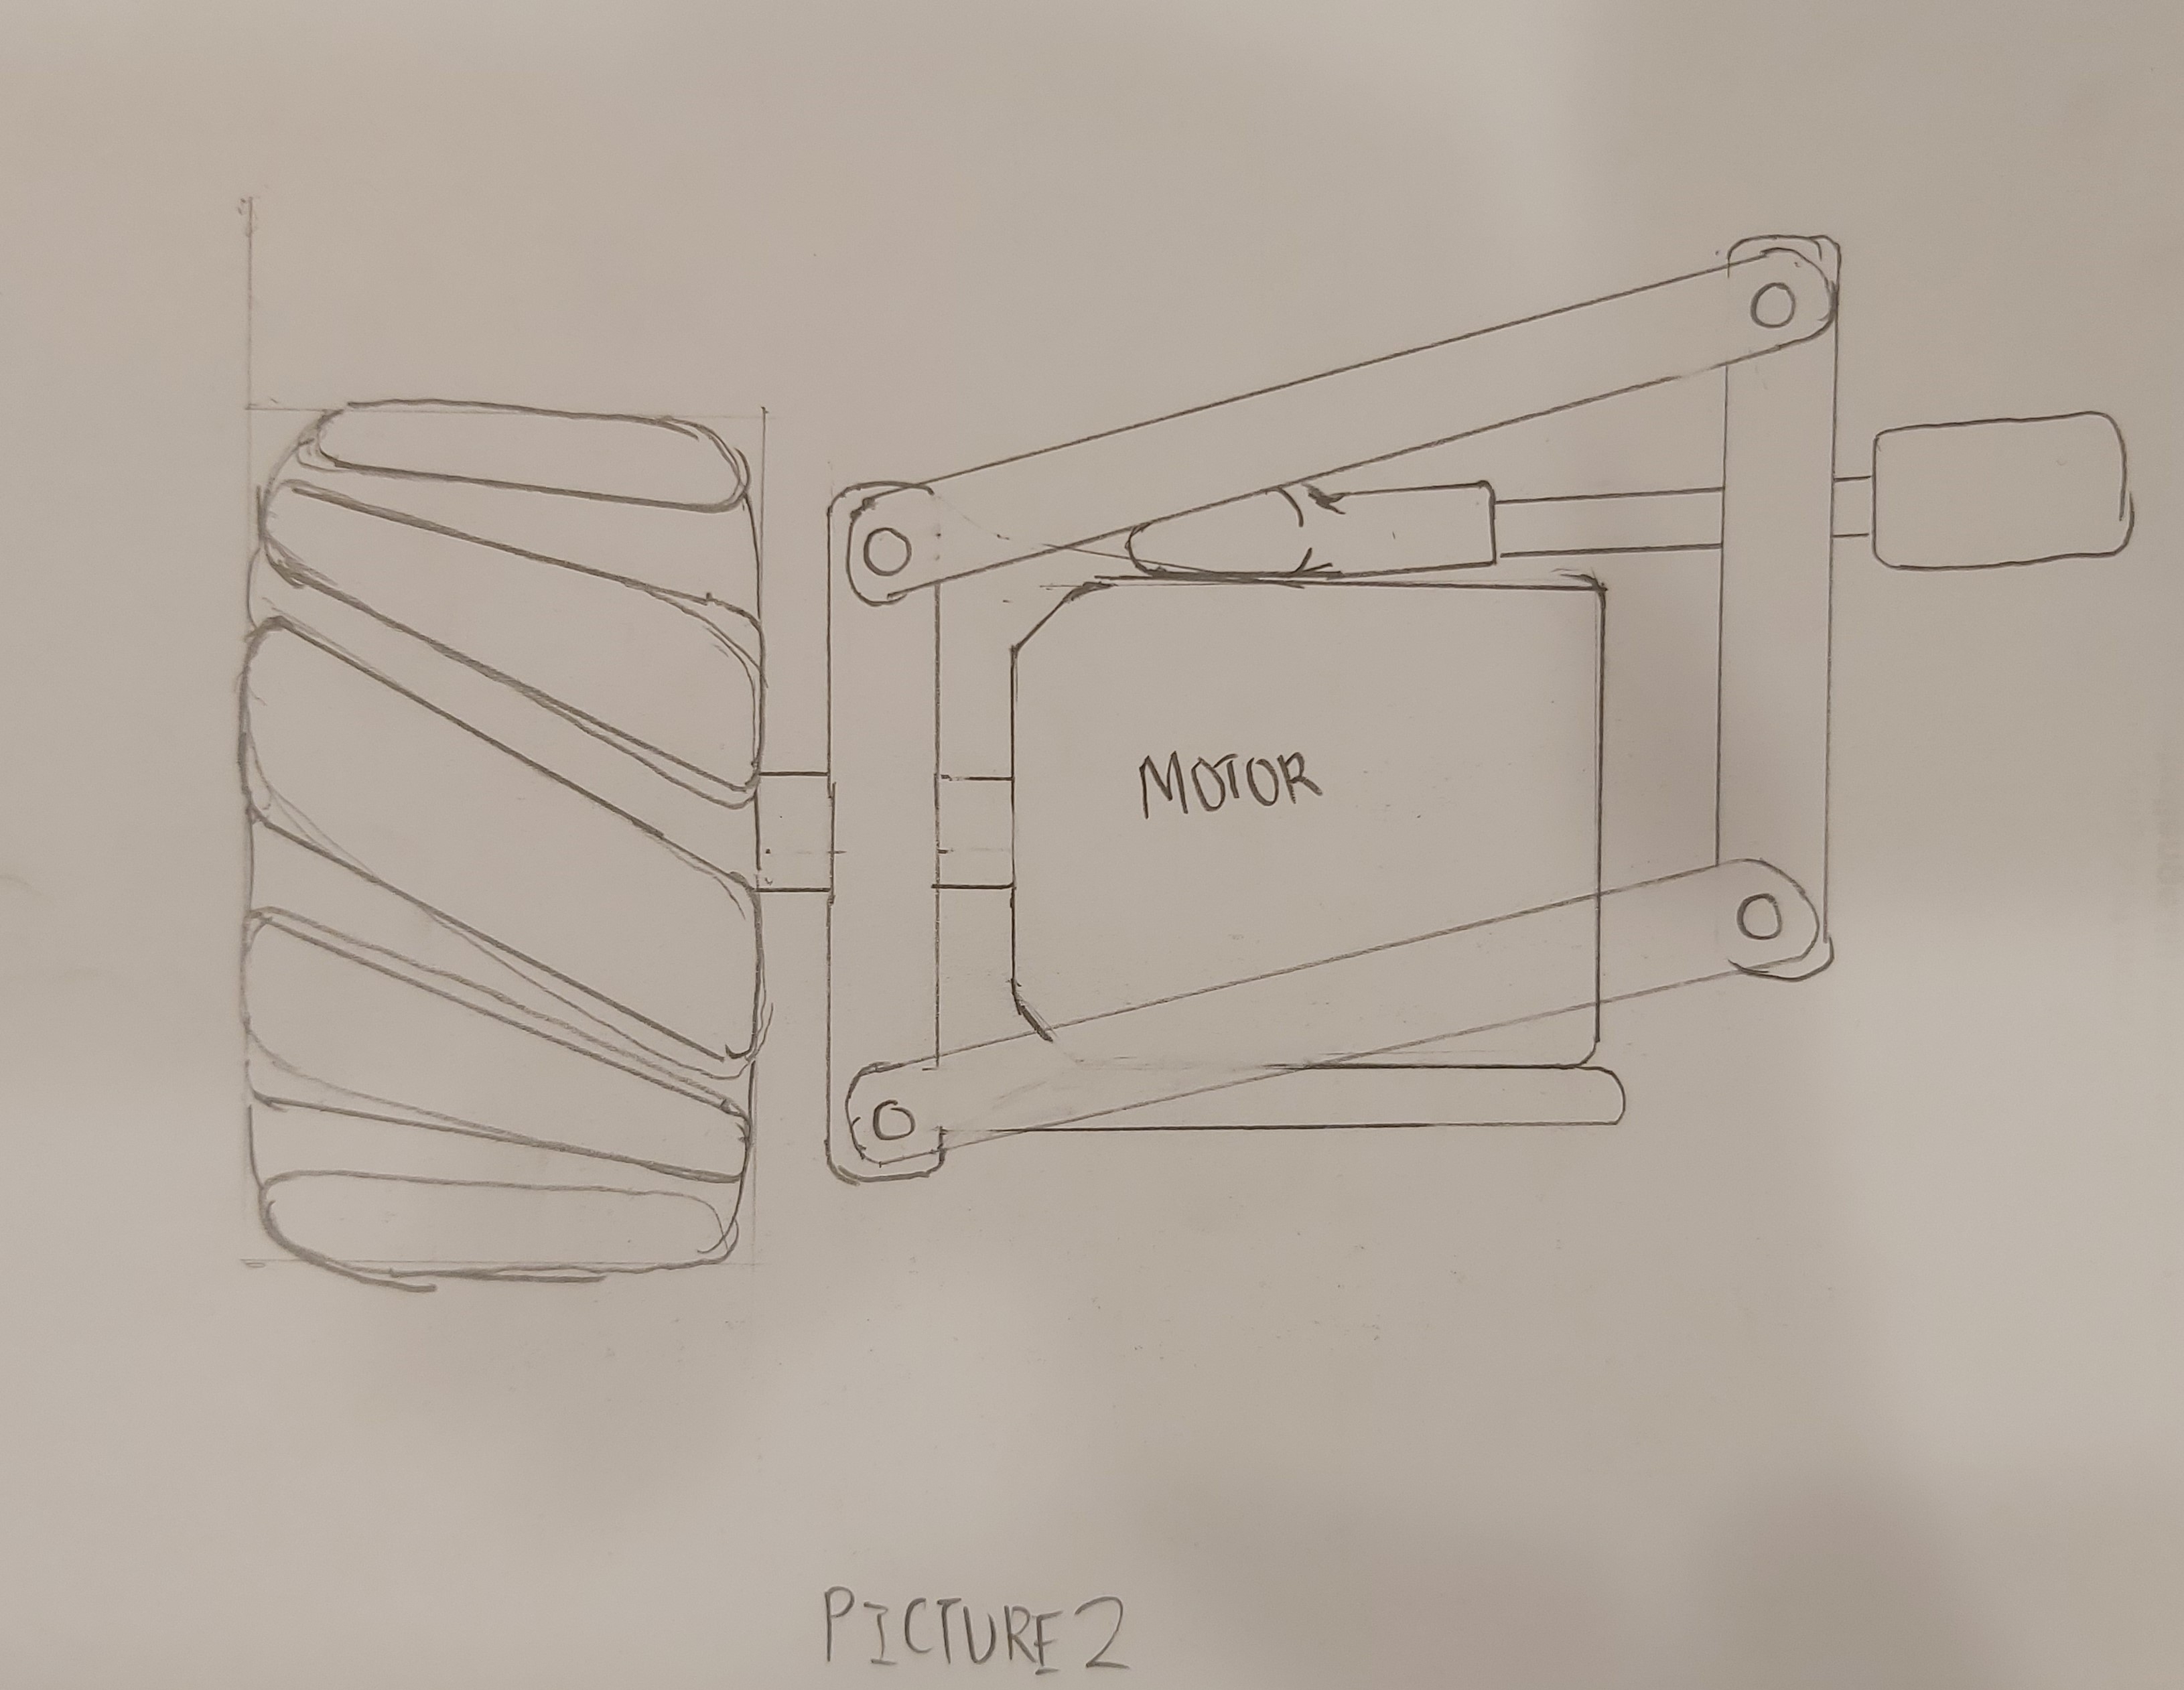 MOTOR
PICTURE 2